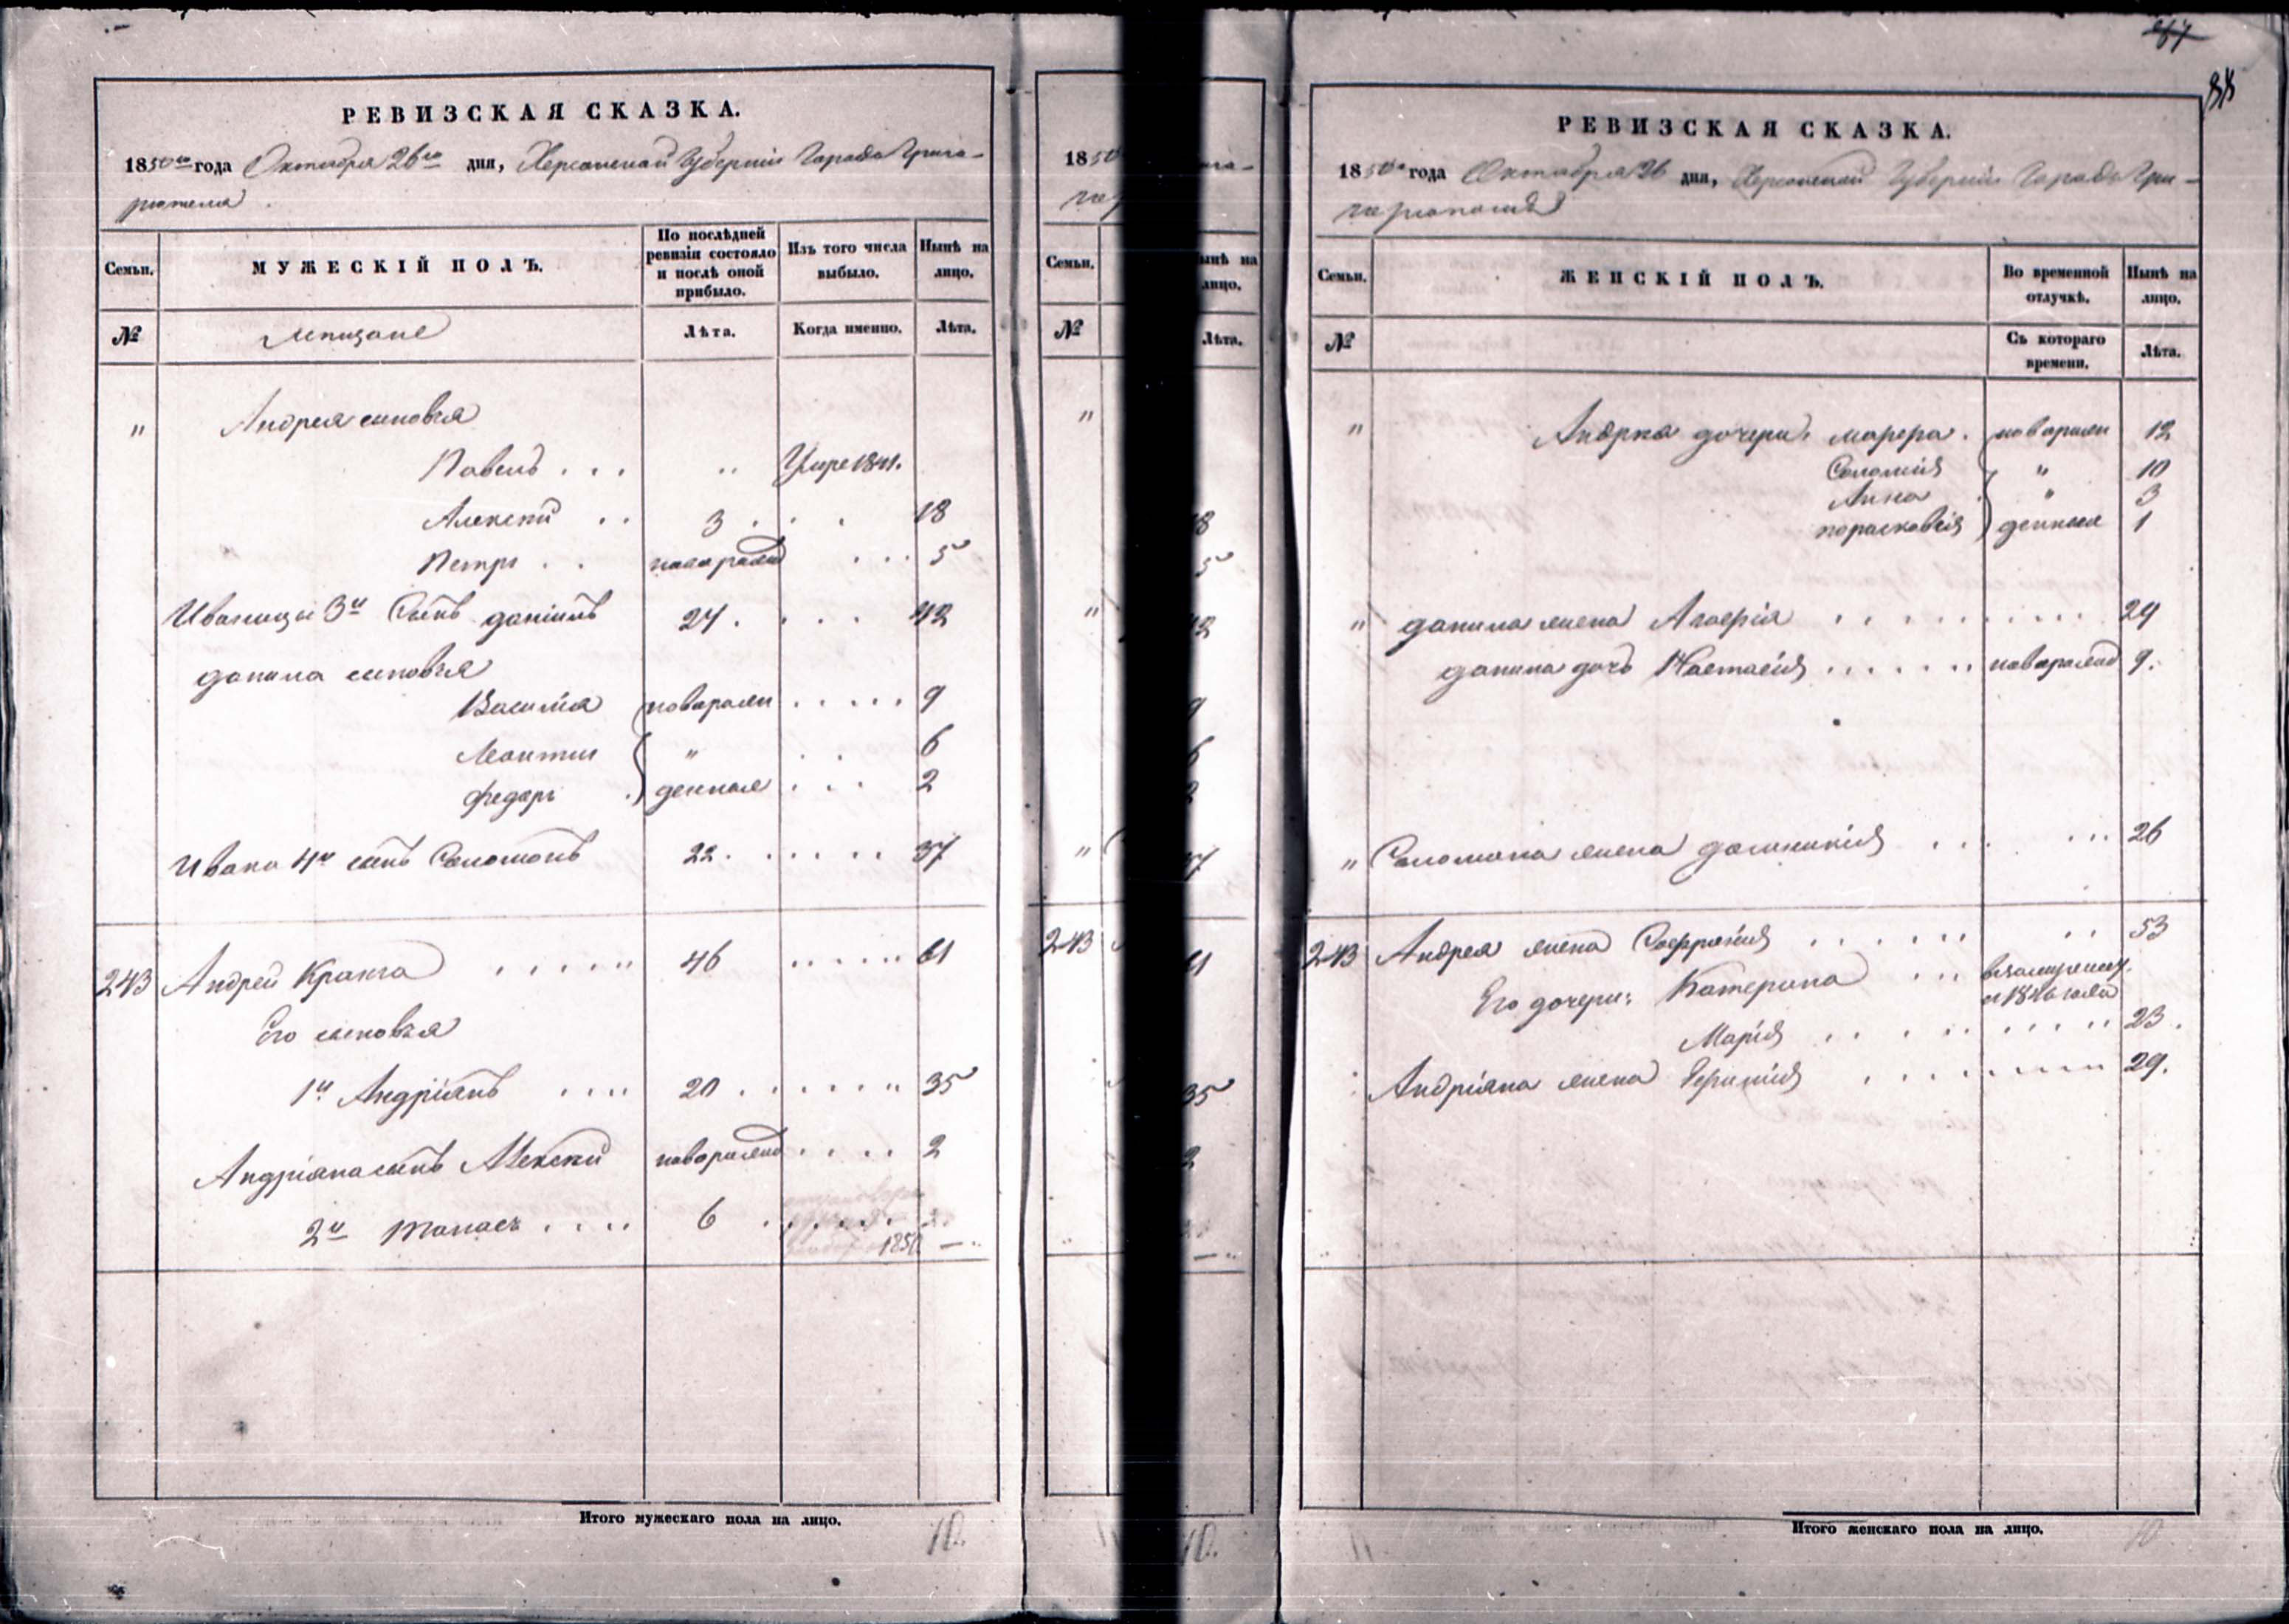 РЕВИЗСКАЯ СКАЗКА.
1850го года Октября 26го дня, Херсонской Губернии Города Григо-
Семьи.
МУЖЕСКІЙ ПОЛЪ.
По послѣдней ревизіи состояло и послѣ оной прибыло.
Изъ того числа выбыло.
Нынѣ на лицо.
№
Мещане
Лѣта.
Когда именно.
Лѣта.
" Андрея сыновья
Павелъ . . . " Умре 1841.
Алексей . . 3 . . . 18
Петръ . . новорожд . . . 5
3й Сынъ даніилъ 24 . . . . 42
данила сыновья
Василій новорожд . . . . . 9
Леонтии " . . 6
Федоръ денныя . . . 2
Ивана 4й сынъ Соломонъ 22 . . . . . . 37
243 Андрей Кранга . . . . . . 46 . . . . . 61
Его сыновья
1й Андріянъ . . . . 20 . . . . . . " 35
Андріяна сынъ Алексей новорожд . . . . 2
2й Танасъ . . . . 6 . . . . . .
1850 — "
Итого мужескаго пола на лицо.
10.
1850
Семьи.
ынѣ на
лицо.
№
Лѣта.
"
"
"
243
10.
88
РЕВИЗСКАЯ СКАЗКА.
1850го года Октября 26 дня, Херсонской Губернии Города Гри-
гориополя
Семьи.
ЖЕНСКІЙ ПОЛЪ.
Во временной отлучкѣ.
Нынѣ на лицо.
№
Съ котораго времени.
Лѣта.
" Андрея дочери: новорож 12
Соломія " 10
Анна " 3
порасковія денныя 1
" данила жена . . . . . . . . . 24
данила дочь Настасія . . . . . . новорожд 9.
" Соломона жена . . . . . . 26
243 Андрея жена Софронія . . . . . . . . 53
Его дочери: Катерина . . . взамужест.
1846 года
Марія . . . . . . . . . " 23.
Андріяна жена . . . . . . . . . 29.
Итого женскаго пола на лицо.
10